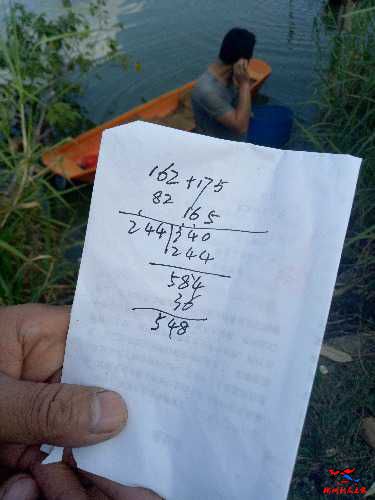 162+175
82 165
244 340
244
584
36
548